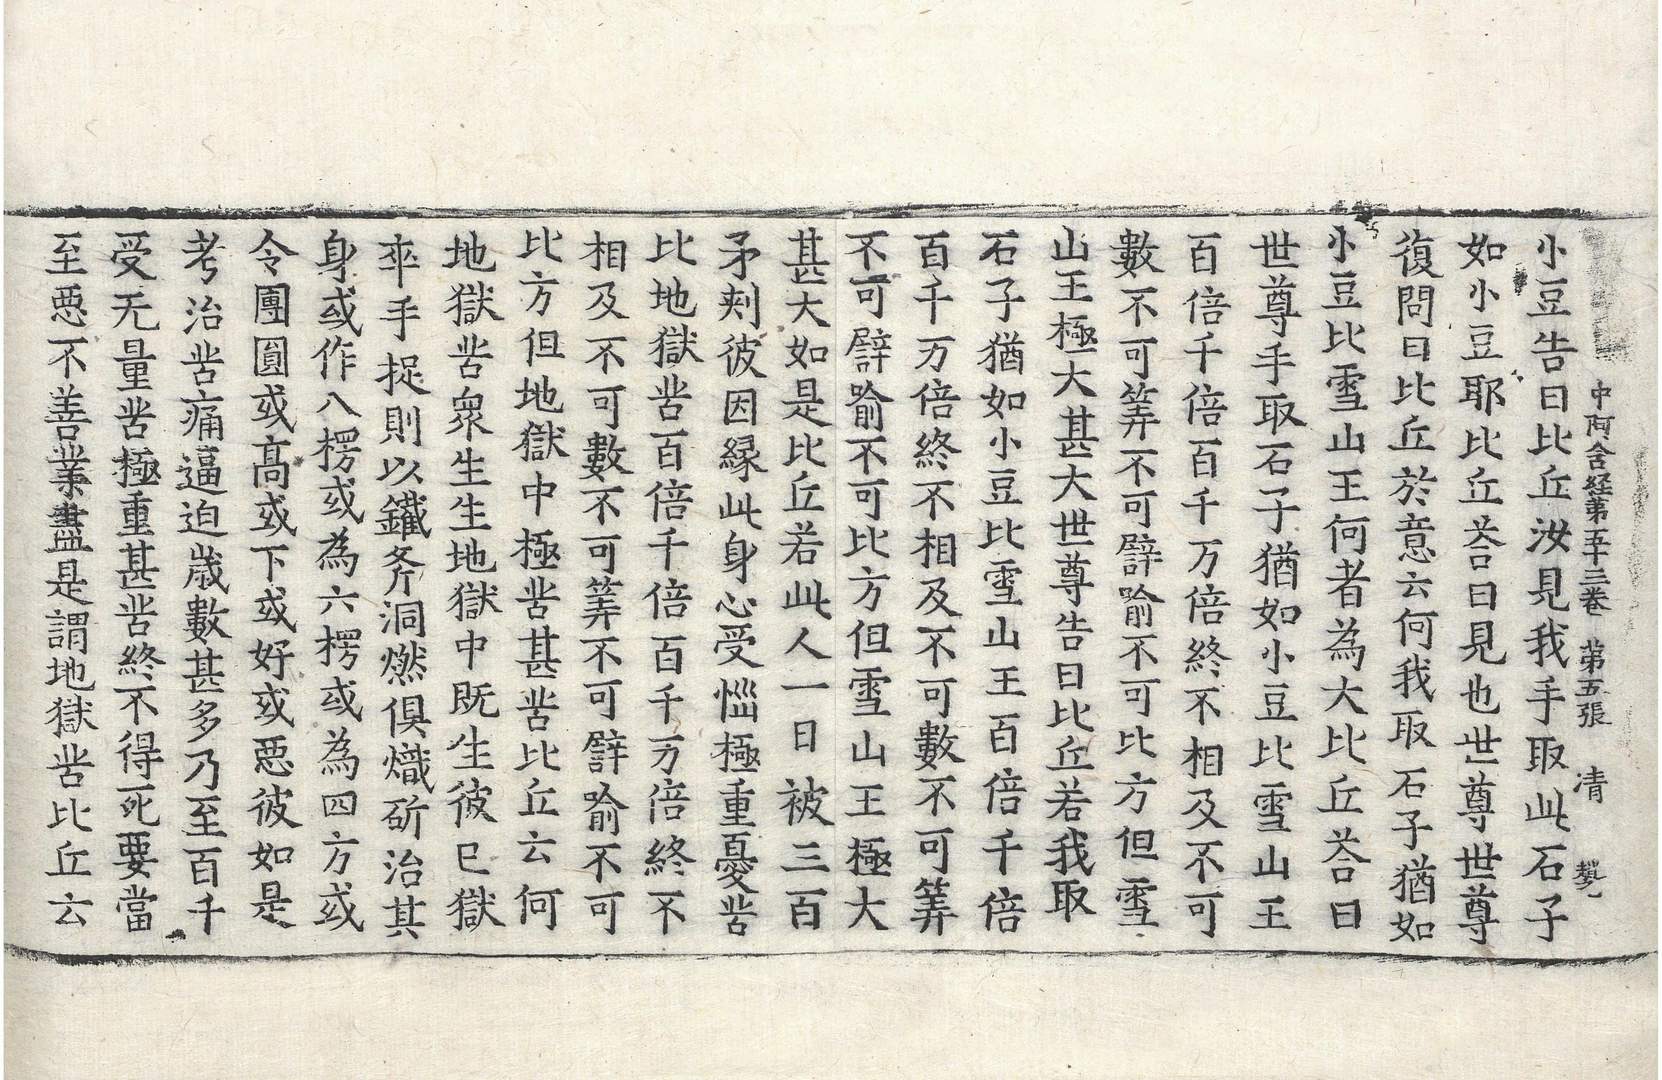 中阿含経第五十三卷　第五張　清
小豆告曰比丘汝見我手取此石子
如小豆耶比丘荅曰見也世尊世尊
復問曰比丘於意云何我取石子猶如
小豆比雪山王何者為大比丘荅曰
世尊手取石子猶如小豆比雪山王
百倍千倍百千万倍終不相及不可
數不可筭不可譬喻不可比方但雪
山王極大甚大世尊告曰比丘若我取
石子猶如小豆比雪山王百倍千倍
百千万倍終不相及不可數不可筭
不可譬喻不可比方但雪山王極大
甚大如是比丘若此人一日被三百
矛刾彼因縁此身心受惱極重憂苦
比地獄苦百倍千倍百千万倍終不
相及不可數不可筭不可譬喻不可
比方但地獄中極苦甚苦比丘云何
地獄苦衆生生地獄中既生彼已獄
卒手捉則以鐵斧洞燃俱熾斫治其
身或作八楞或為六楞或為四方或
令團圓或高或下或好或惡彼如是
考治苦痛逼迫歲數甚多乃至百千
受无量苦極重甚苦終不得死要當
至惡不善業盡是謂地獄苦比丘云